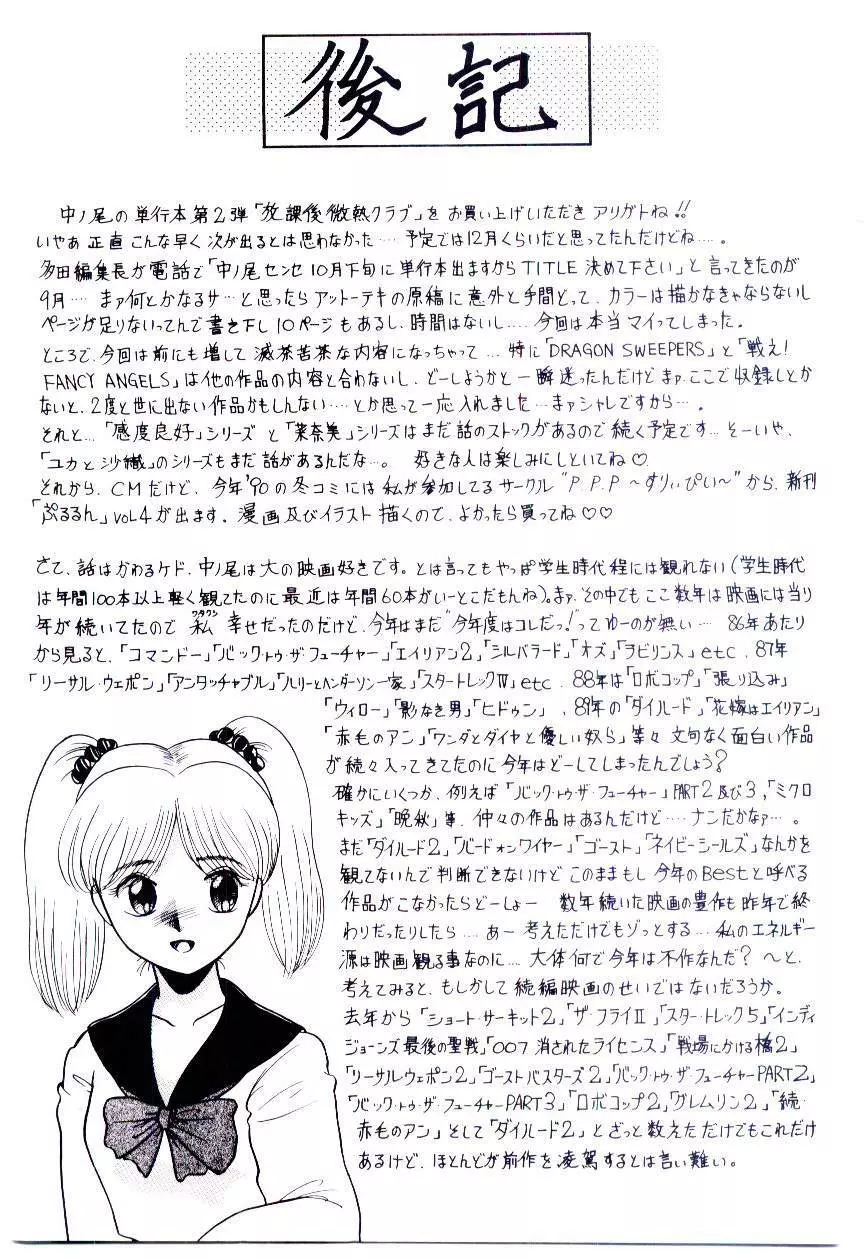 後記
中ノ尾の単行本第2弾「放課後微熱クラブ」をお買い上げいただきアリガトね!!
いやあ 正直 こんな早く次が出るとは思わなかった…. 予定では12月くらいだと思ってたんだけどね….。
多田編集長が電話で「中ノ尾センセ10月下旬に単行本出ますからTITLE決めて下さい」と言ってきたのが
9月…. まァ何とかなるサ…と思ったらアットーテキの原稿に意外と手間どって、カラーは描かなきゃならないし
ページが足りないってんで書き下し10ページもあるし、時間はないし…. 今回は本当マイってしまった。
ところで、今回は前にも増して滅茶苦茶な内容になっちゃって… 特に「DRAGON SWEEPERS」と「戦え!
FANCY ANGELS」は他の作品の内容と合わないし、どーしようかと一瞬迷ったんだけど まァ、ここで収録しとか
ないと、2度と世に出ない作品かもしんない….とか思って一応入れました…まァシャレですから….。
それと…「感度良好」シリーズと「茉奈美」シリーズはまだ話のストックがあるので続く予定です…そーいや、
「ユカと沙織」のシリーズもまだ話があるんだな…。 好きな人は楽しみにしといてね♡
それから、CMだけど、今年'90の冬コミには私が参加してるサークル"P.P.P〜すりぃぴぃ〜"から、新刊
「ぷるるん」VOL4が出ます。漫画及びイラスト描くので、よかったら買ってね♡♡
さて、話はかわるケド、中ノ尾は大の映画好きです。とは言ってもやっぱ学生時代程には観れない(学生時代
は年間100本以上軽く観てたのに最近は年間60本がいーとこだもんね)。まァ、その中でもここ数年は映画には当り
年が続いてたので私ワタクシ幸せだったのだけど、今年はまだ"今年度はコレだっ!"ってゆーのが無い… 86年あたり
から見ると、「コマンドー」「バック・トゥ・ザ・フューチャー」「エイリアン2」「シルバラード」「オズ」「ラビリンス」etc、87年
「リーサル・ウェポン」「アンタッチャブル」「ハリーとヘンダーソン一家」「スタートレックIV」etc、88年は「ロボコップ」「張り込み」
「ウィロー」「影なき男」「ヒドゥン」、89年の「ダイ・ハード」「花嫁はエイリアン」
「赤毛のアン」「ワンダとダイヤと優しい奴ら」等々 文句なく面白い作品
が続々入ってきてたのに今年はどーしてしまったんでしょう?
確かにいくつか、例えば「バック・トゥ・ザ・フューチャー」PART2及び3、「ミクロ
キッズ」「晩秋」等、仲々の作品はあるんだけど…ナンだかなァ…。
まだ「ダイ・ハード2」「バード・オン・ワイヤー」「ゴースト」「ネイビー・シールズ」なんかを
観てないんで判断できないけど このままもし 今年のBestと呼べる
作品がこなかったらどーしょー 数年続いた映画の豊作も昨年で終
わりだったりしたら…. あー考えただけでもゾっとする…. 私のエネルギー
源は映画観る事なのに…. 大体何で今年は不作なんだ? 〜と、
考えてみると、もしかして続編映画のせいではないだろうか。
去年から「ショート・サーキット2」「ザ・フライII」「スター・トレック5」「インディ
ジョーンズ最後の聖戦」「007 消されたライセンス」「戦場にかける橋2」
「リーサルウェポン2」「ゴーストバスターズ2」「バック・トゥ・ザ・フューチャーPART2」
「バック・トゥ・ザ・フューチャーPART3」「ロボコップ2」「グレムリン2」「続・
赤毛のアン」として「ダイ・ハード2」とざっと数えただけでもこれだけ
あるけど、ほとんどが前作を凌駕するとは言い難い。